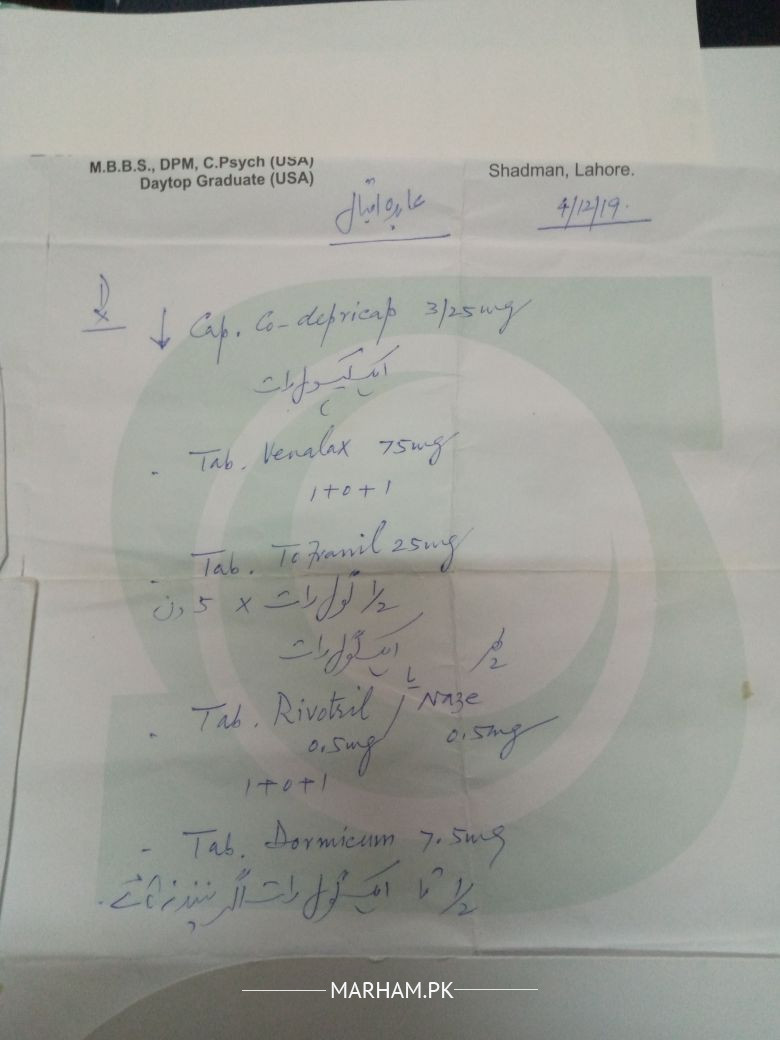 M.B.B.S., DPM, C.Psych (USA)
Daytop Graduate (USA)
Shadman, Lahore.
اقبال
4/12/19.
↓ Cap. Co-depricap 3/25mg
ایک کیپسول رات
- Tab. Venalax 75mg
1+0+1
- Tab. Tofranil 25mg
1/2 گولی رات x 5 دن
پھر ایک گولی رات
- Tab. Rivotril / یا Naze
0.5mg 0.5mg
1+0+1
- Tab. Dormicum 7.5mg
1/2 تا ایک گولی رات اگر نیند نہ آئے۔
MARHAM.PK